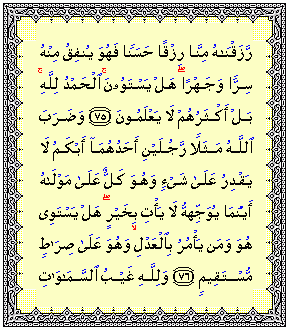 رَّزَقْنَـٰهُ مِنَّا رِزْقًا حَسَنًا فَهُوَ يُنفِقُ مِنْهُ
سِرًّا وَجَهْرًا ۖ هَلْ يَسْتَوُۥنَ ۚ ٱلْحَمْدُ لِلَّهِ ۚ
بَلْ أَكْثَرُهُمْ لَا يَعْلَمُونَ ﴿٧٥﴾ وَضَرَبَ
ٱللَّهُ مَثَلًا رَّجُلَيْنِ أَحَدُهُمَآ أَبْكَمُ لَا
يَقْدِرُ عَلَىٰ شَىْءٍ وَهُوَ كَلٌّ عَلَىٰ مَوْلَىٰهُ
أَيْنَمَا يُوَجِّههُّ لَا يَأْتِ بِخَيْرٍ ۖ هَلْ يَسْتَوِى
هُوَ وَمَن يَأْمُرُ بِٱلْعَدْلِ ۙ وَهُوَ عَلَىٰ صِرَٰطٍ
مُّسْتَقِيمٍ ﴿٧٦﴾ وَلِلَّهِ غَيْبُ ٱلسَّمَـٰوَٰتِ